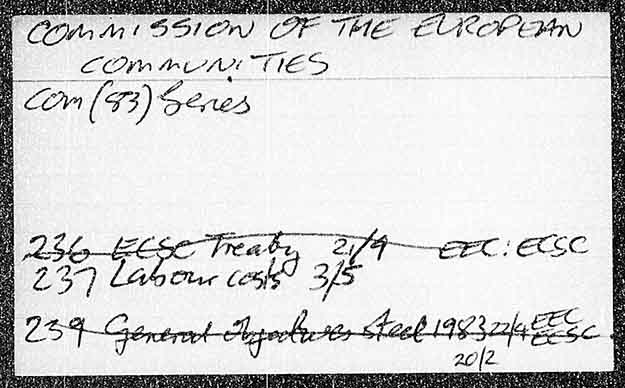 COMMISSION OF THE EUROPEAN
COMMUNITIES
COM (83) Series
236 ECSC Treaty 21/9 EEC: ECSC
237 Labour costs 3/5
239 General Objectives steel 1983 22/4 EEC
ECSC
20/2